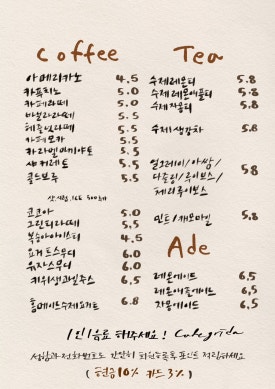 Coffee
아메리카노 4.5
카푸치노 5.0
카페라떼 5.0
바닐라라떼 5.5
헤즐넛라떼 5.5
카페모카 5.5
카라멜마끼아또 5.5
샤커레토 5.5
콜드브루 5.5
코코아 5.0
그린티라떼 5.5
복숭아아이스티 4.5
요거트스무디 6.0
유자스무디 6.0
키위생과일주스 6.5
홈메이드수제요거트 6.8
Tea
수제레몬티 5.8
수제레몬애플티 5.8
수제자몽티 5.8
수제생강차 5.8
얼그레이/아쌈/
다즐링/루이보스/ 5.8
체리루이보스
민트/캐모마일 5.8
Ade
레몬에이드 6.5
레몬애플에이드 6.5
자몽에이드 6.5
1인1음료 해주세요!
성함과 전화번호로 간단히 회원등록후 포인트 적립하세요
(현금10% 카드3%)